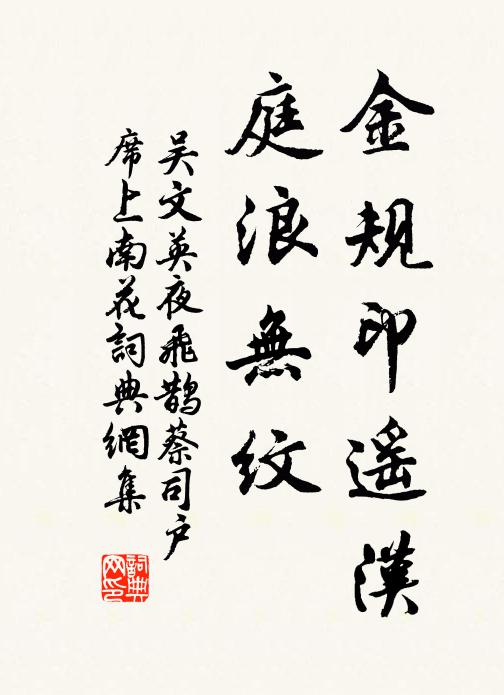 金规印遥漢
庭浪無紋
吴文英夜飛鹊蔡司户
席上南花詞典網集
詞典网印